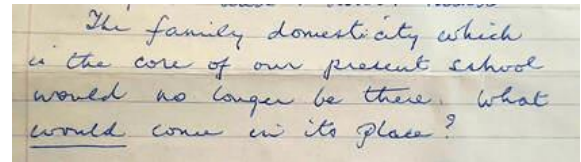 The family domesticity which
is the core of our present school
would no longer be there. What
would come in its place?